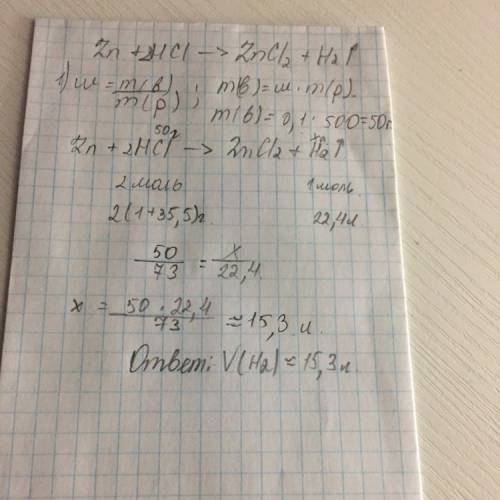 Zn + 2HCl → ZnCl2 + H2↑
1) w = m(в)/m(р) ; m(в) = w · m(р).
m(в) = 0,1 · 500 = 50г
50г x
Zn + 2HCl → ZnCl2 + H2↑
2 моль 1 моль
2(1+35,5)г. 22,4л
50/73 = x/22,4
x = 50 · 22,4/73 ≈ 15,3 л.
Ответ: V(H2) ≈ 15,3 л.